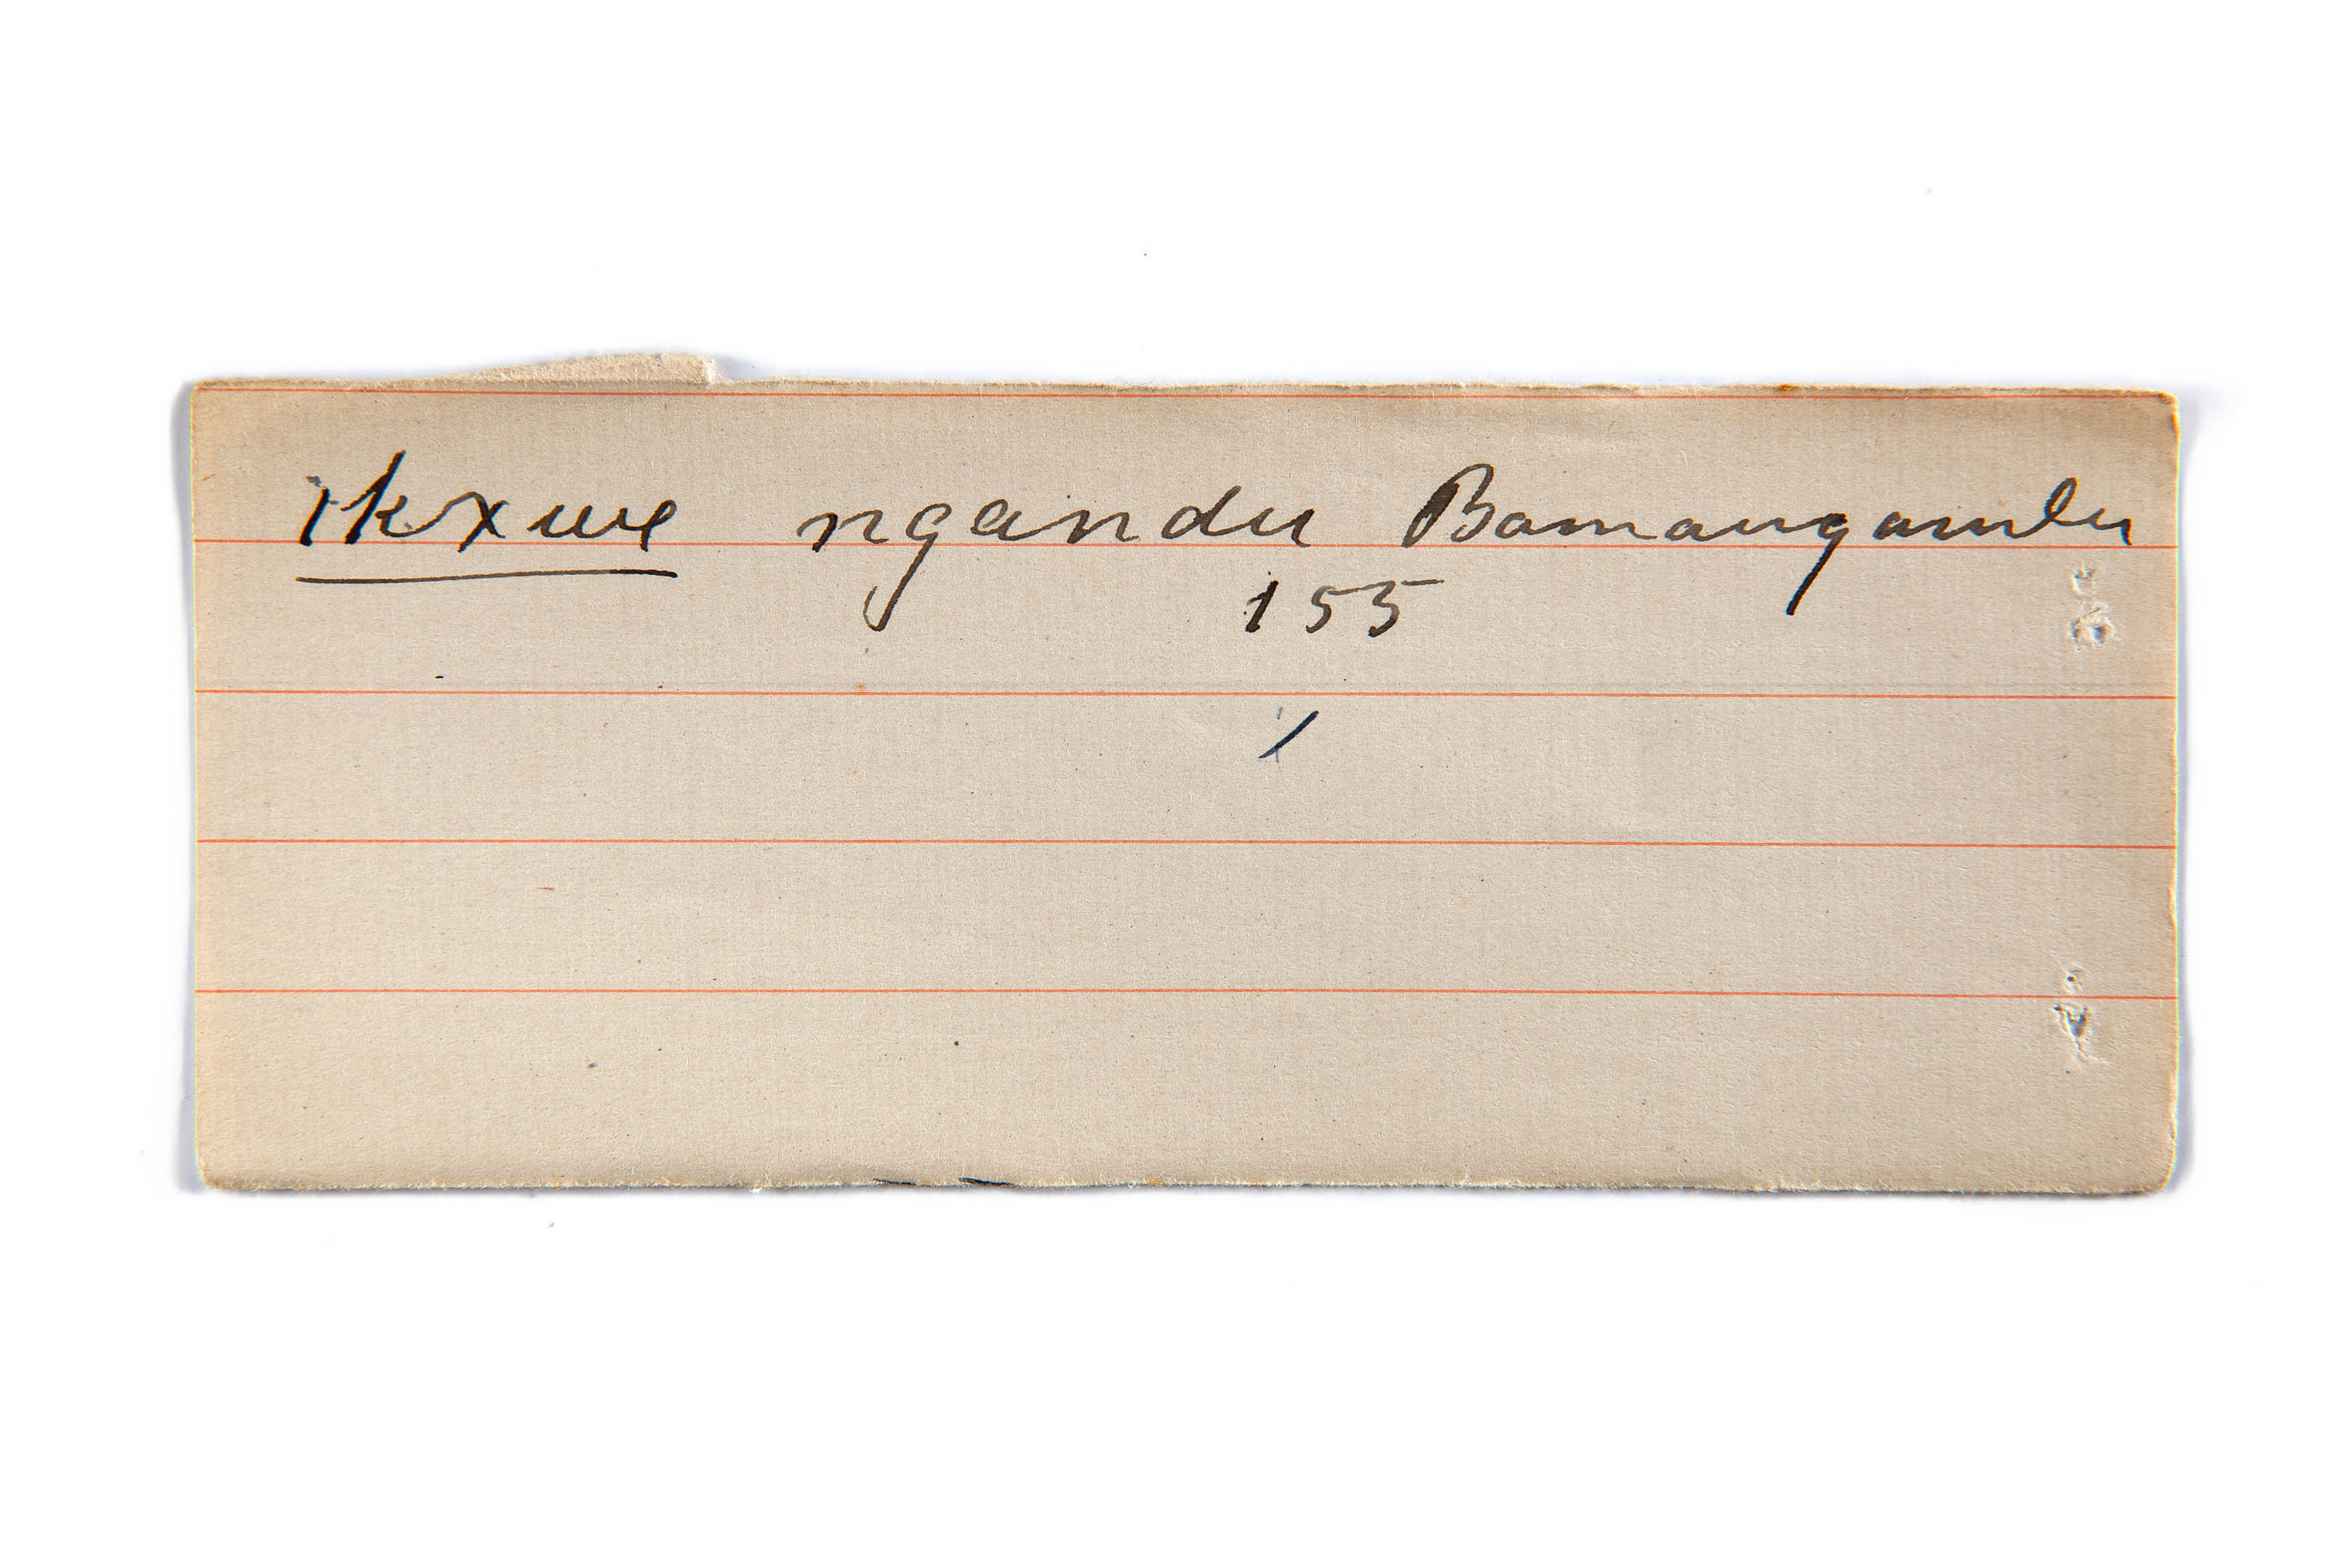 ikxwe ngandu Bamangambu
155